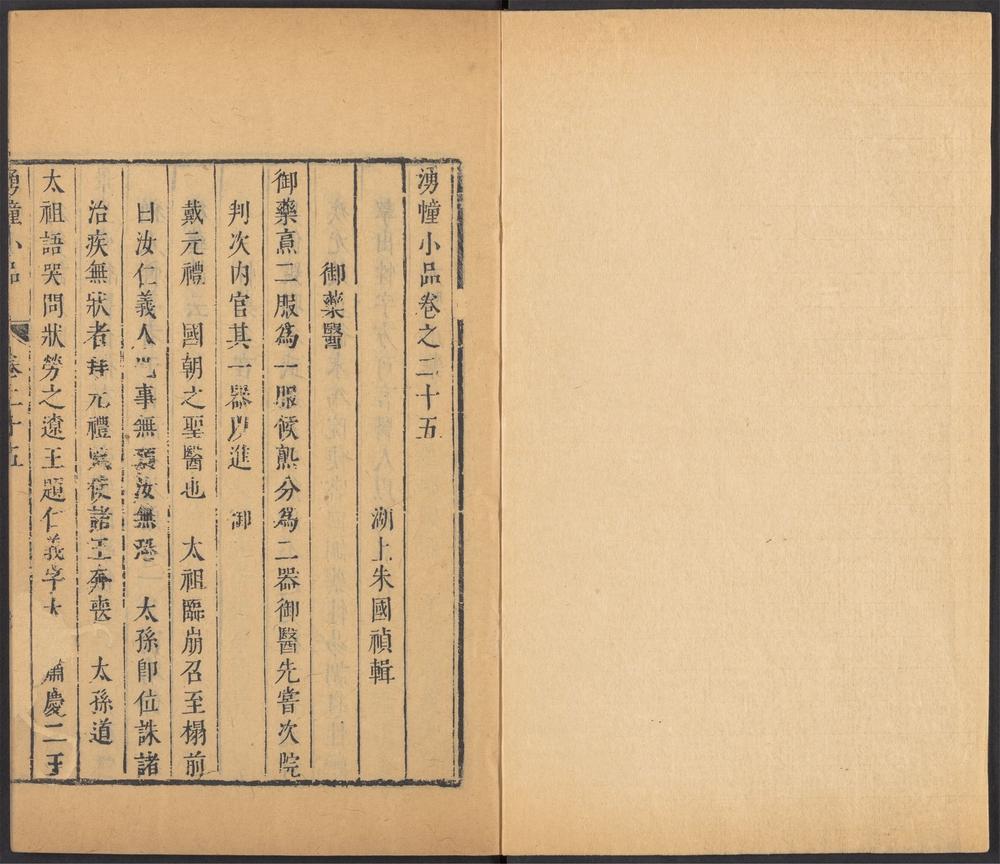 湧幢小品卷之二十五
湖上朱國禎輯
御藥醫
御藥烹二服為一服候熟分為二器御醫先嘗次院
判次內官其一器以進 御
戴元禮 國朝之聖醫也 太祖臨崩召至榻前
曰汝仁義人也事無預汝無恐 太孫即位誅諸
治疾無狀者拜元禮院使諸王奔喪 太孫道
太祖語哭問狀勞之遼王題仁義字 肅慶二王
湧幢小品 卷二十五